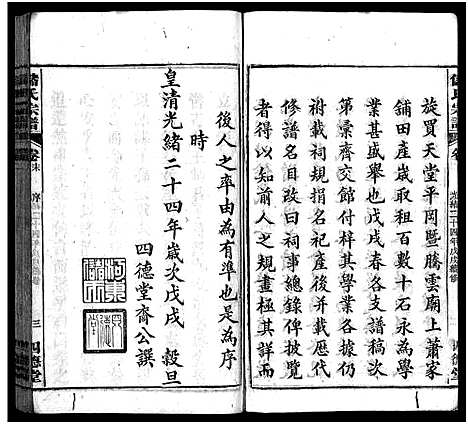 旋買天堂平岡暨騰雲廟上蕭家
鋪田產歲取租穀八十石永為學
業甚盛舉也戊戌春各支譜稿次
第彙齊交館付梓其學業各據契
祔載祠規捐名祀享並載歷代
修譜名目於祠事總錄俾披覽
者得以知前人之規畫極其詳而
後人之率由為有準也是為序
時
皇清光緒二十四年歲次戊戌 穀旦
四德堂齋公譔
氏宗譜
卷末
三
四德堂